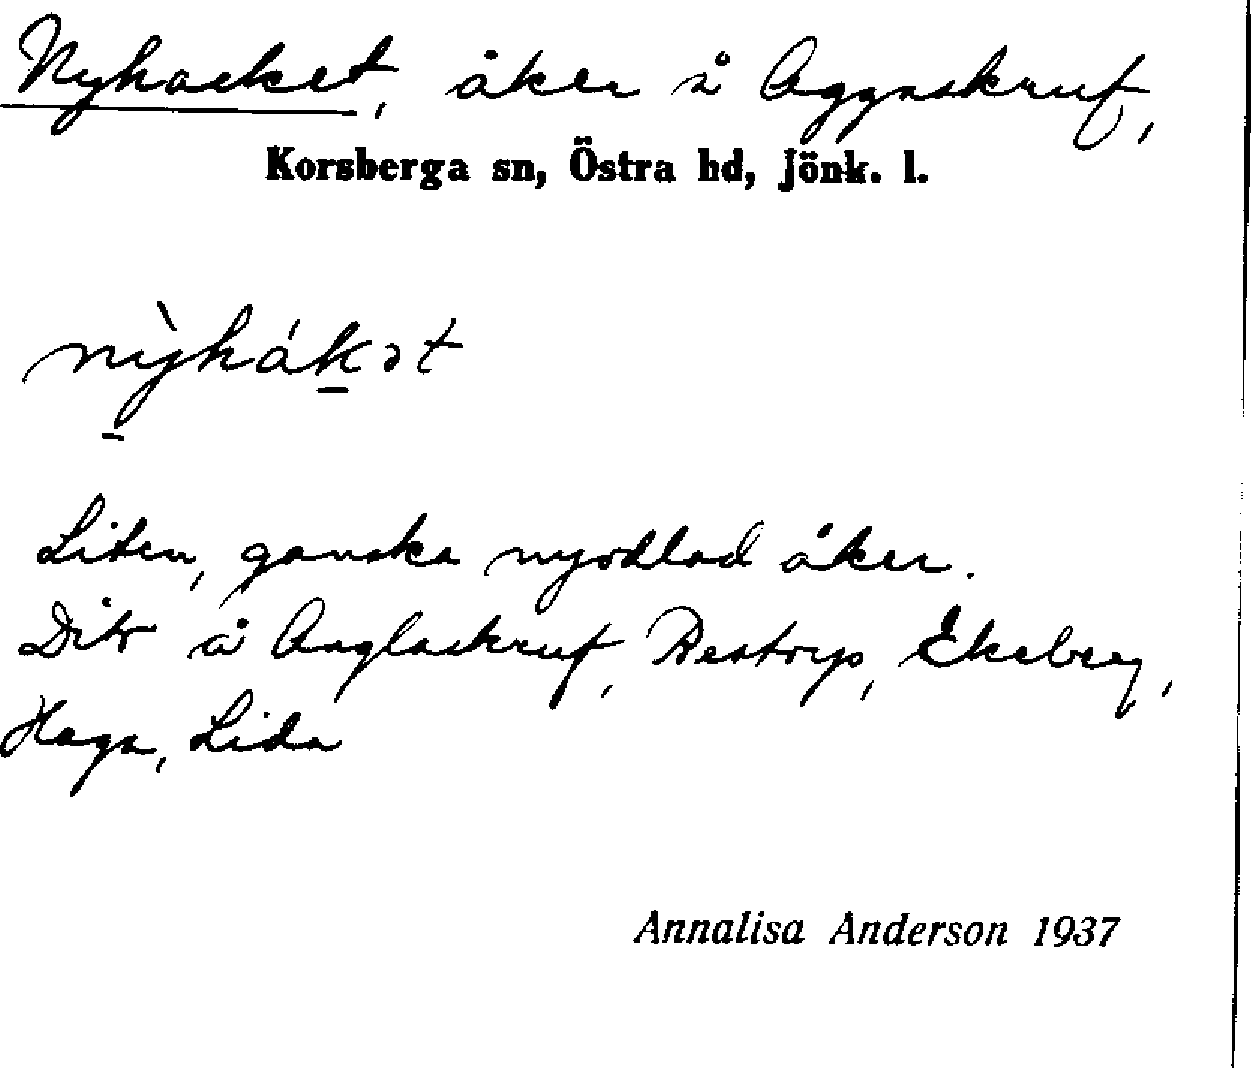 Nyhacket, åker å Aggaskruf,
Korsberga sn, Östra hd, Jönk. l.
nỳhákət
Liten, ganska nyodlad åker.
Dito å Anglaskruf, Restorp, Ekeberg,
Haga, Lida
Annalisa Anderson 1937